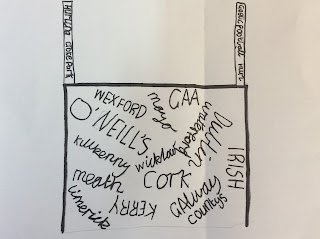 HURLING
Gaelic football
WEXFORD
mayo
GAA
O'NEILL'S
Dublin
kilkenny
wicklow
IRISH
meath
CORK
GAlway
limerick
KERRY
countys